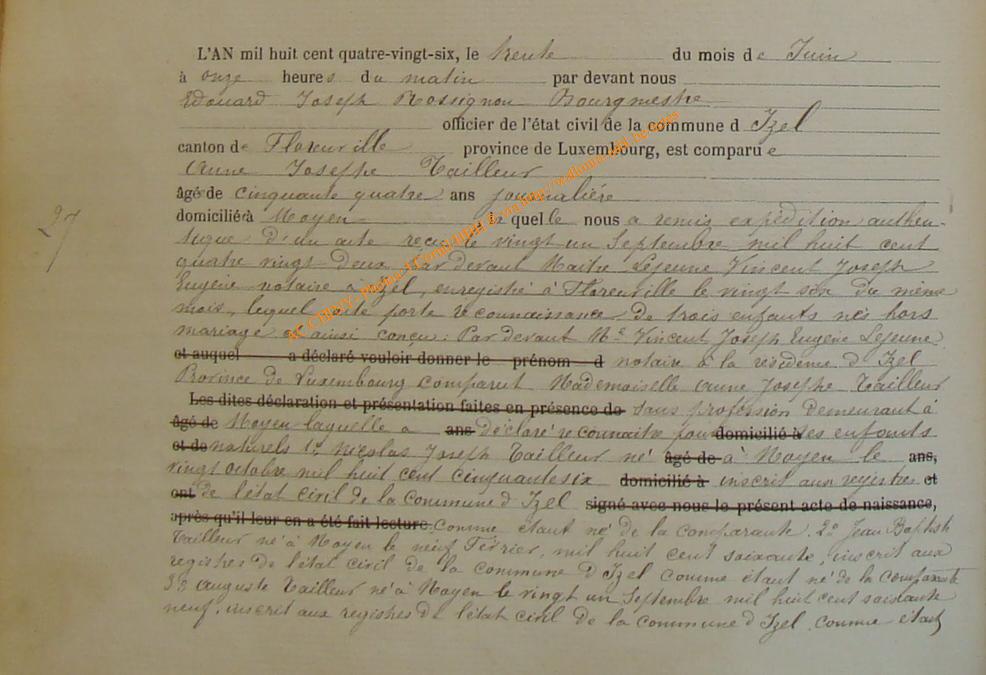 L'AN mil huit cent quatre-vingt-six, le trente du mois de Juin
à onze heures du matin par devant nous
Edouard Joseph Rossignon Bourgmestre
officier de l'état civil de la commune d Izel
canton de Florenville province de Luxembourg, est comparue
Anne Josephe Tailleur
âgé de cinquante quatre ans journalière
domicilié à Moyen la quelle nous a remis expédition authen-
tique d'un acte reçu le vingt un Septembre mil huit cent
quatre vingt deux par devant Maitre Lejeune Vincent Joseph
Eugène notaire à Izel, enregistré à Florenville le vingt six du même
mois, lequel acte porte reconnaissance de trois enfants nés hors
mariage et ainsi conçu: Par devant Me Vincent Joseph Eugène Lejeune
et auquel a déclaré vouloir donner le prénom d notaire à la résidence d Izel
Province de Luxembourg comparut Mademoiselle Anne Josephe Tailleur
Les dites déclaration et présentation faites en présence de sans profession demeurant à
âgé de Moyen laquelle a ans déclaré reconnaitre pour domicilié à ses enfants
et de naturels 1o Nicolas Joseph Tailleur né âgé de à Moyen le ans,
vingt octobre mil huit cent cinquante six domicilié à inscrit aux registres et
ont de l'état civil de la Commune d Izel signé avec nous le présent acte de naissance,
après qu'il leur en a été fait lecture. Comme étant né de la comparante. 2o Jean Baptiste
Tailleur né à Moyen le neuf Février, mil huit cent soixante, inscrit aux
registres de l'état civil de la commune d Izel comme étant né de la comparante
3o Auguste Tailleur né à Moyen le vingt un Septembre mil huit cent soixante
neuf, inscrit aux registres de l'état civil de la commune d Izel comme étant
27